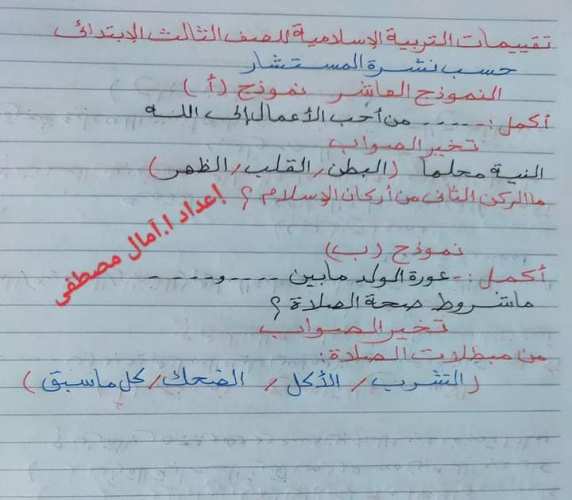 تقييمات التربية الإسلامية للصف الثالث الابتدائى
حسب نشرة المستشار
النموذج العاشر نموذج (أ)
أكمل :- ------ من أحب الأعمال إلى الله
تخير الصواب
النية محلها (البطن / القلب / الظهر)
ما الركن الثانى من أركان الإسلام ؟
إعداد أ.آمال مصطفى
نموذج (ب)
أكمل :- عورة الولد مابين ----- و-----
ماشروط صحة الصلاة ؟
تخير الصواب
من مبطلات الصلاة :
(الشرب / الأكل / الضحك / كل ماسبق)